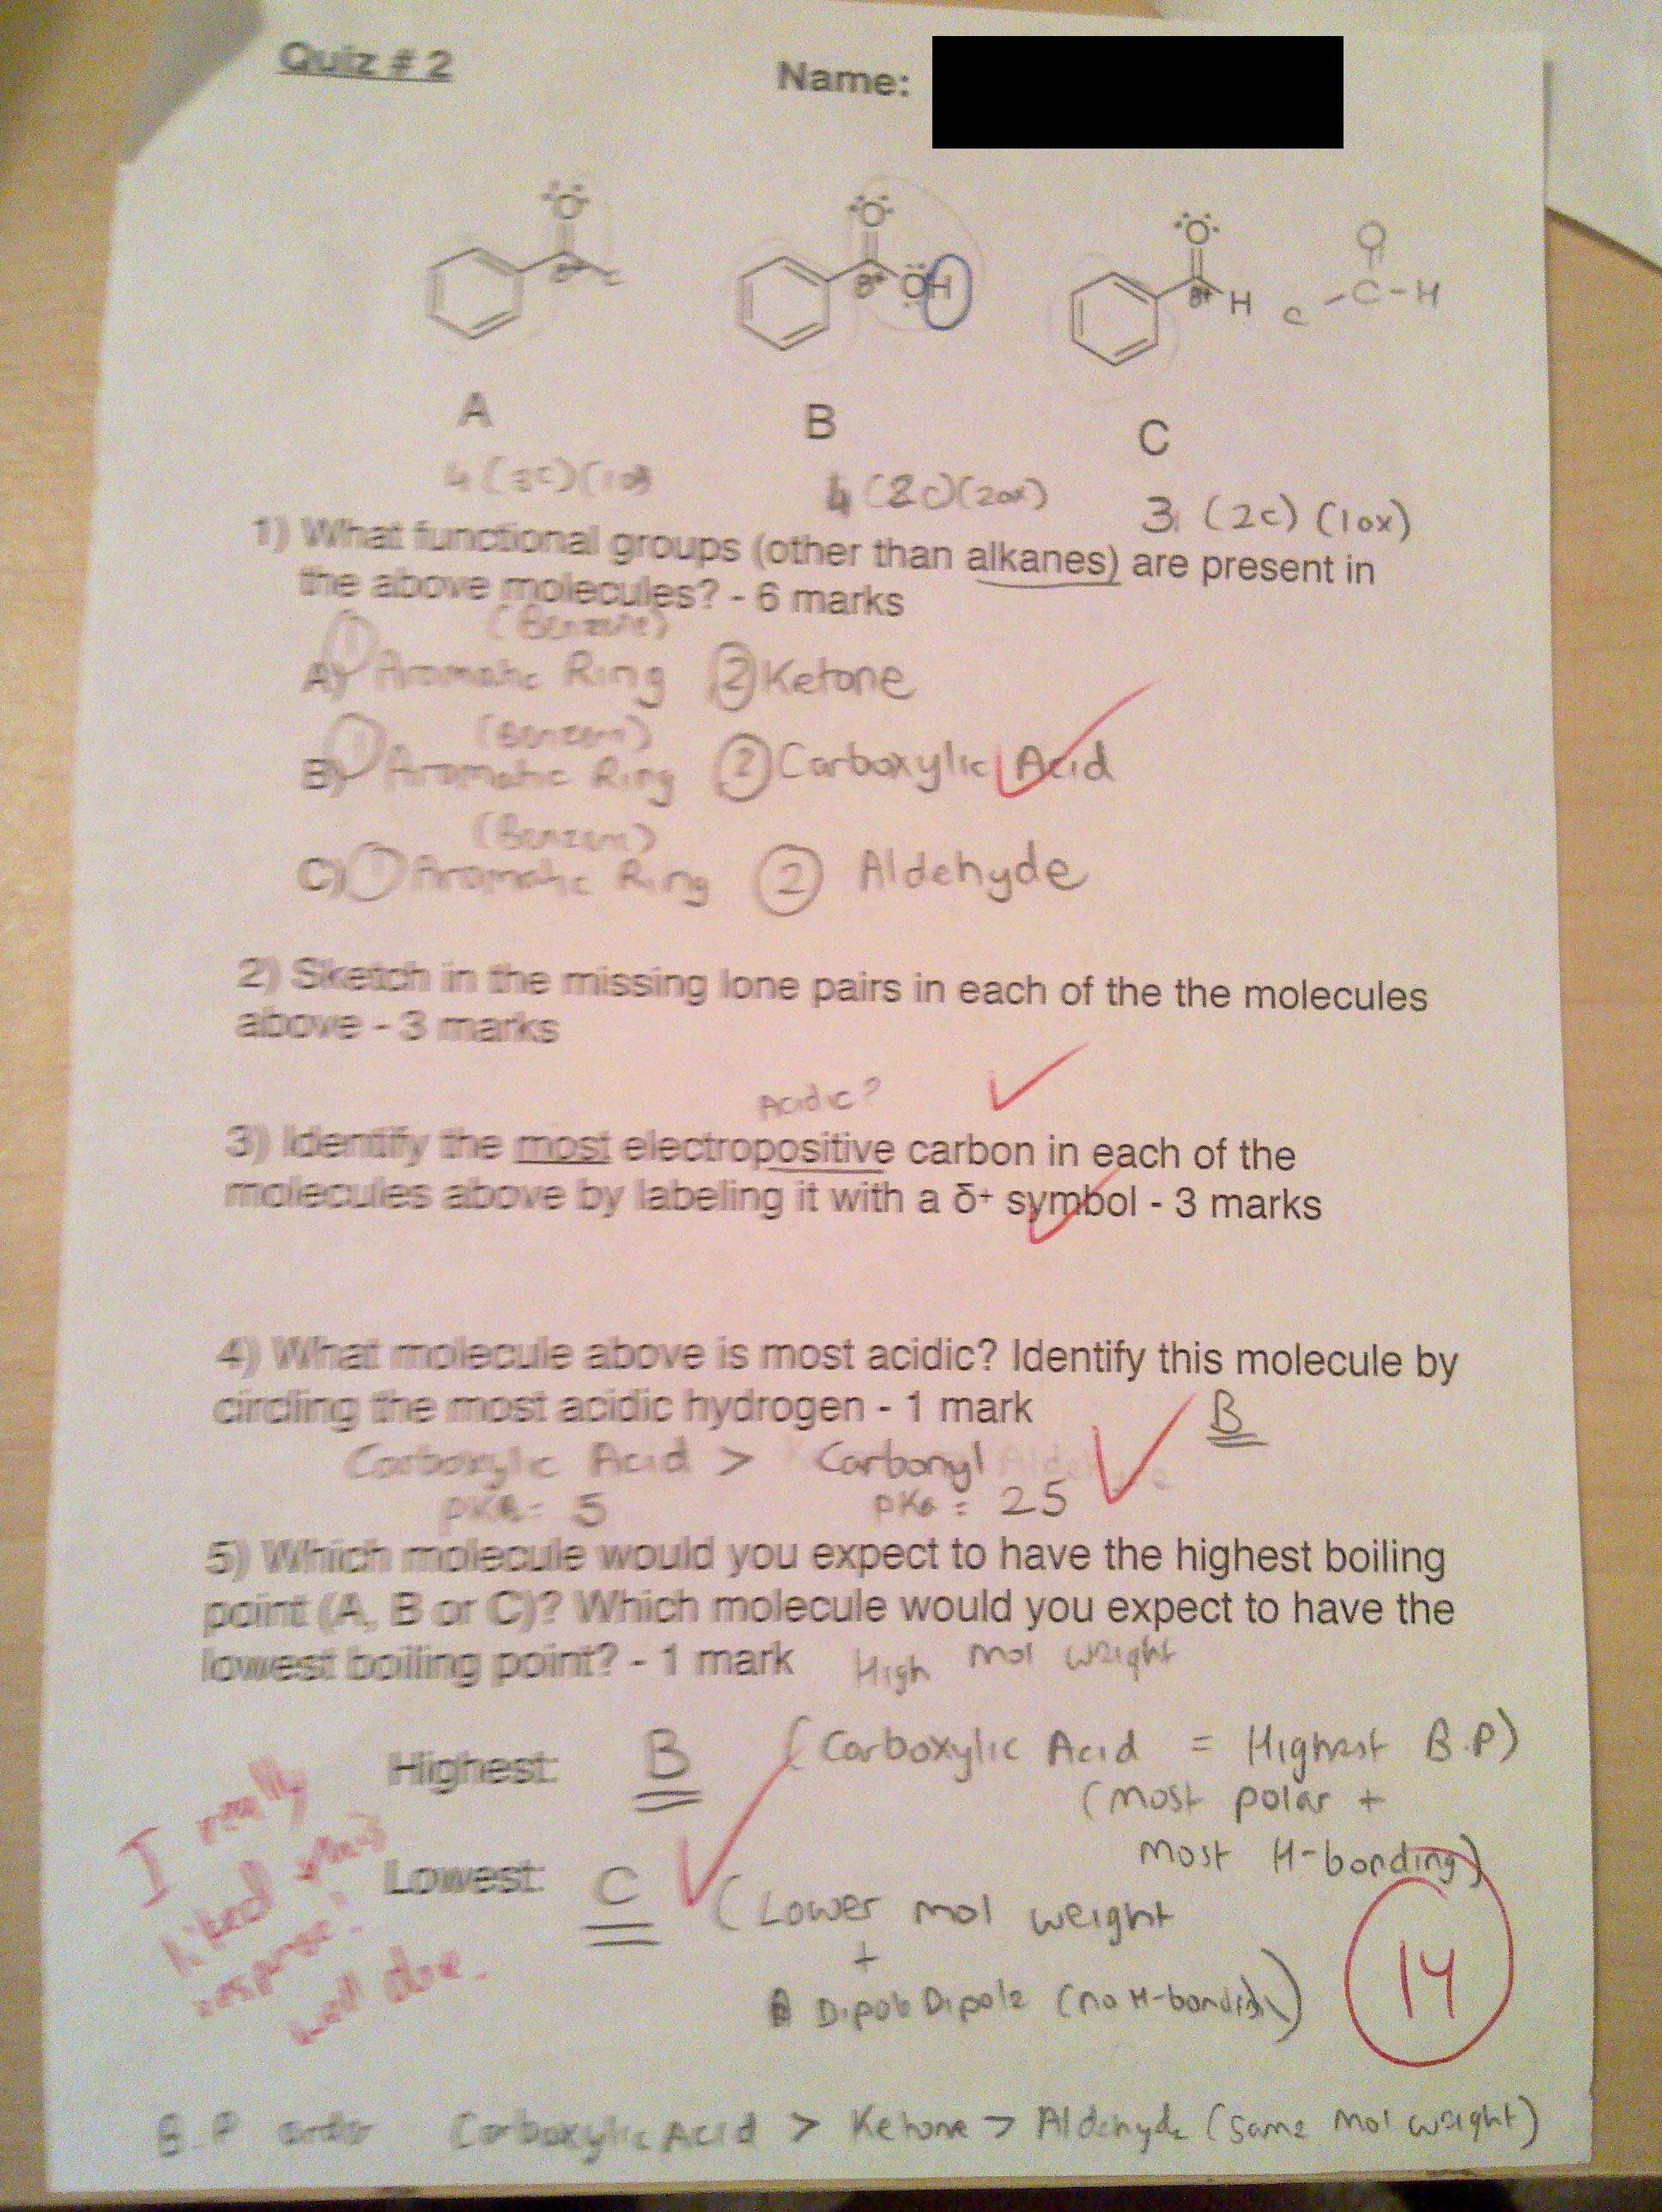 Quiz # 2
Name:
:O: :O: :O: O
δ+ c δ+ ÖH δ+ H c -C-H
A B C
4 (3c)(1ox) 4 (2c)(2ox) 3 (2c) (1ox)
1) What functional groups (other than alkanes) are present in
the above molecules? - 6 marks
(Benzene)
A) 1 Aromatic Ring 2 Ketone
(Benzene)
B) 1 Aromatic Ring 2 Carboxylic Acid
(Benzene)
C) 1 Aromatic Ring 2 Aldehyde
2) Sketch in the missing lone pairs in each of the the molecules
above - 3 marks
Acidic?
3) Identify the most electropositive carbon in each of the
molecules above by labeling it with a δ+ symbol - 3 marks
4) What molecule above is most acidic? Identify this molecule by
circling the most acidic hydrogen - 1 mark
B
Carboxylic Acid > Carbonyl
pKa = 5 pKa = 25
5) Which molecule would you expect to have the highest boiling
point (A, B or C)? Which molecule would you expect to have the
lowest boiling point? - 1 mark High mol weight
Highest: B (Carboxylic Acid = Highest B.P)
(most polar +
most H-bonding)
Lowest: C (Lower mol weight
+
Dipole Dipole (no H-bonding))
I really
liked this
response.
well done.
14
B.P order Carboxylic Acid > Ketone > Aldehyde (Same mol weight)